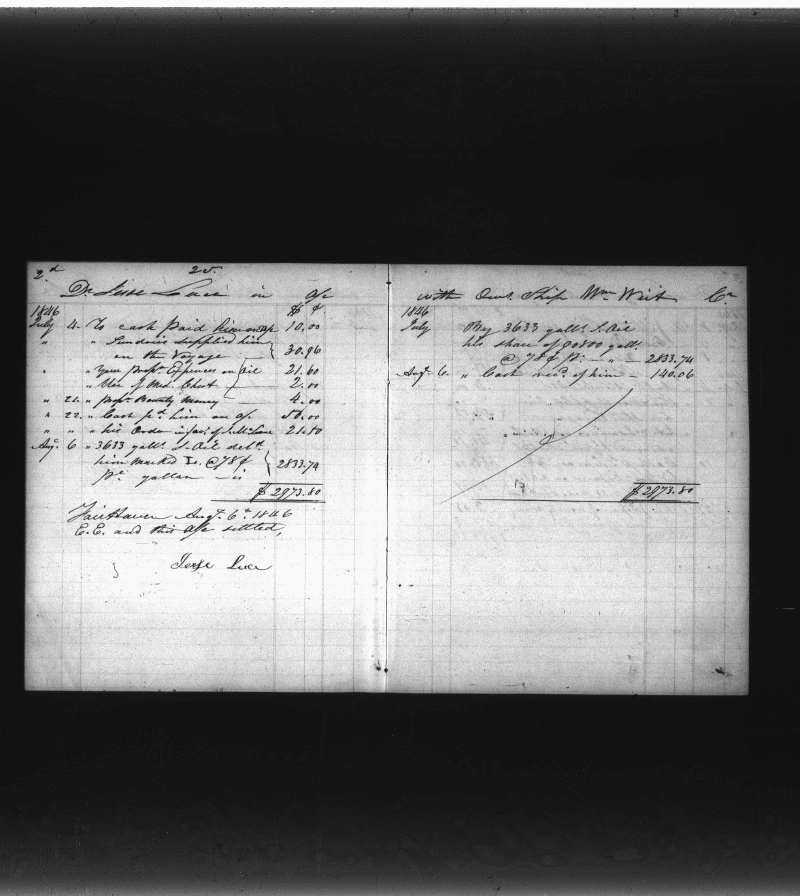 2d 25.
Dr Jesse Luce in a/c
1846 $ ¢
July 4. To cash paid him on a/c 10.00
" " Sundries supplied him
on the Voyage 30.96
" " your propn Expences on Oil 21.60
" " Use of Med. Chest 2.00
" 21. " propn Bounty Money 4.00
" 22. " Cash pd him on a/c 50.00
" " " his Order in fav. of Luce 21.50
Augt 6 " 3633 galls S. Oil deld
him marked @ 78¢
pr gallon is 2833.74
$ 2973.80
Fairhaven Augt 6th 1846
E.E. and this a/c settled,
Jesse Luce
with Owrs Ship Wm Wirt Cr
1846
July By 3633 galls S. Oil
his share of 90800 galls
@ 78¢ pr " 2833.74
Augt 6. " Cash recd of him 140.06
$ 2973.80